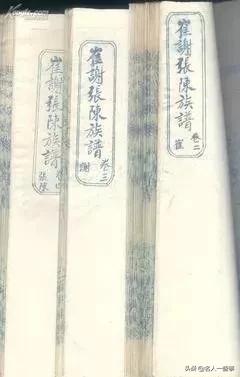 崔謝張陳族譜
卷二
崔
崔謝張陳族譜
卷三
謝
崔謝張陳族譜
張陳
头条 @名人一些事